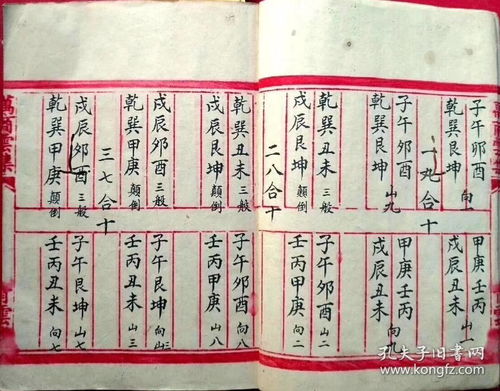 子午卯酉
乾巽艮坤 向一
甲庚壬丙 山一
戌辰丑未
一九合十
子午卯酉
乾巽艮坤 山九
甲庚壬丙
戌辰丑未 向九
乾巽丑未 三般
戌辰艮坤 顛倒
子午卯酉 山二
壬丙甲庚 向二
二八合十
乾巽丑未 三般
戌辰艮坤 顛倒
子午卯酉 向八
壬丙甲庚 山八
戌辰卯酉 三般
乾巽甲庚 顛倒
子午艮坤 向三
壬丙丑未 山三
三七合十
戌辰卯酉 三般
乾巽甲庚 顛倒
子午艮坤 山七
壬丙丑未 向七
孔夫子旧书网
www.kongfz.com